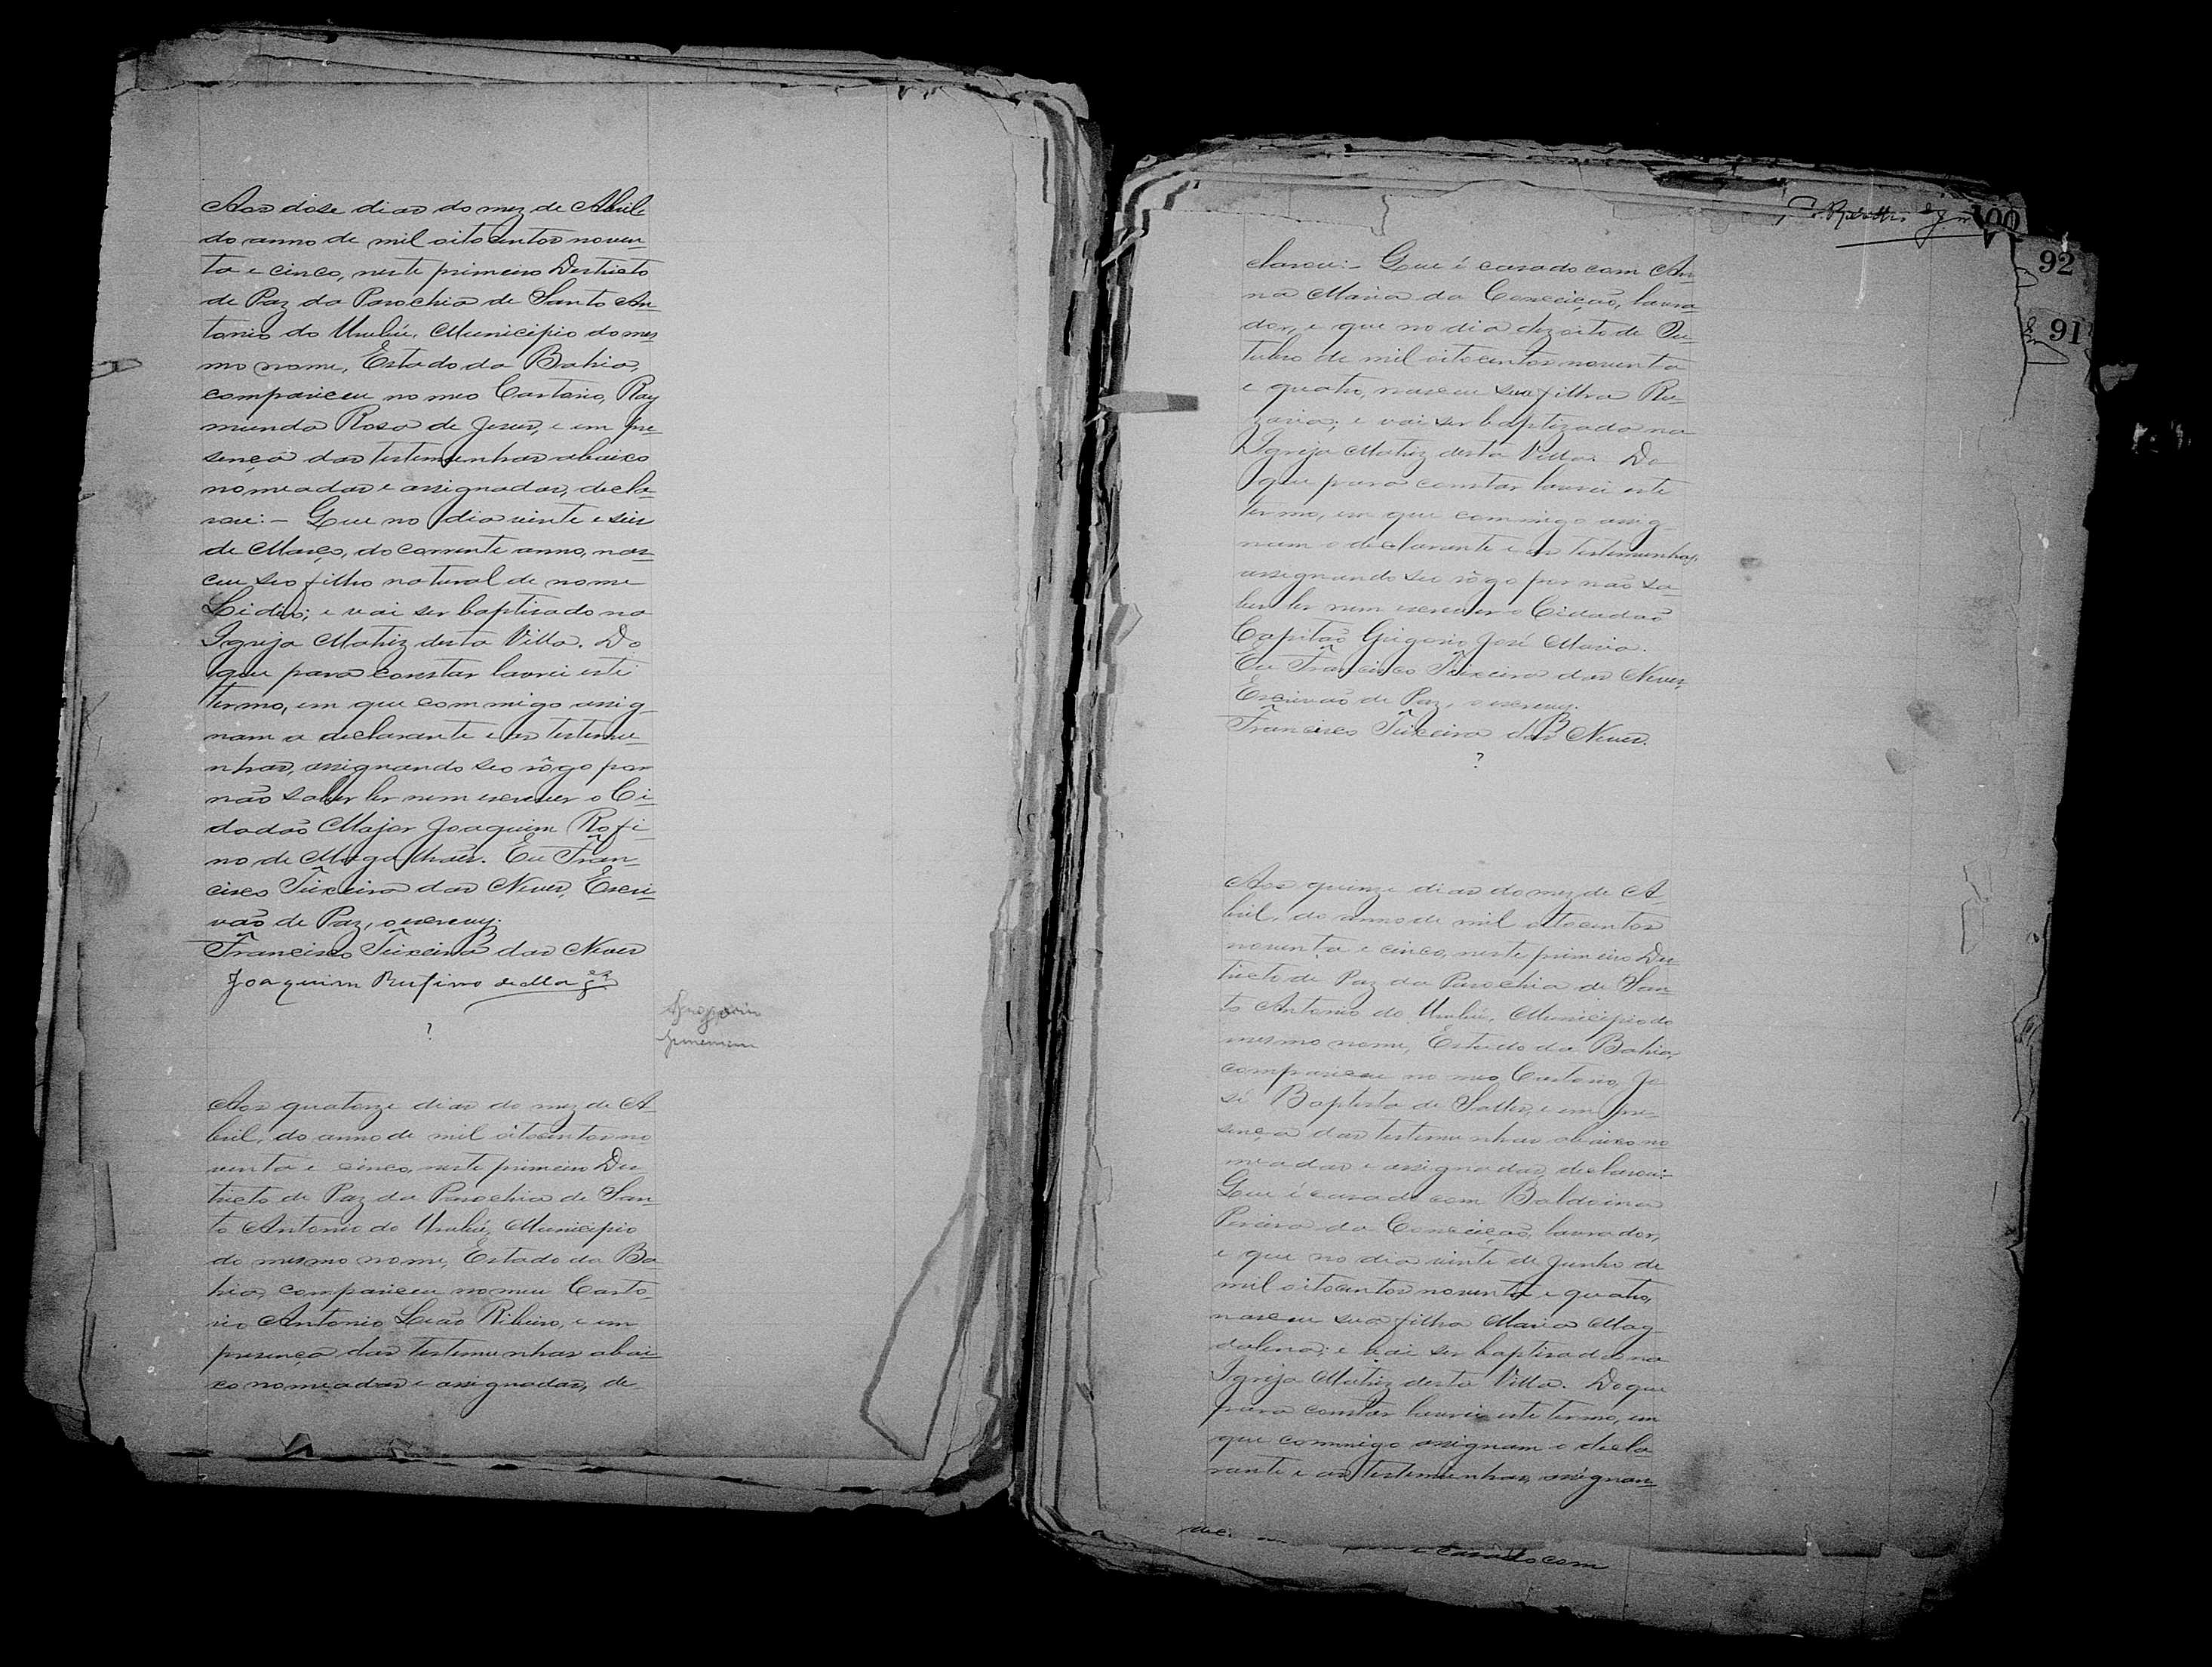 Aos dose dias do mez de Abril
do anno de mil oitocentos noven-
ta e cinco, neste primeiro Destricto
de Paz da Parochia de Santo An-
tonio do Urubú, Municipio do mes
mo nome, Estado da Bahia,
compareceu no meo Cartorio, Ray
munda Rosa de Jesus, e em pre-
sença das testemunhas abaixo
nomeadas e assignadas, decla-
rou:- Que no dia vinte e seis
de Março, do corrente anno, nas-
ceu seo filho natural de nome
e vai ser baptisado na
Igreja Matriz desta Villa. Do
que para constar lavrei este
termo, em que commigo assig-
nam a declarante e as testemu-
nhas, assignando seo rôgo por
não saber ler nem escrever o Ci-
dadão Major Joaquim Rofi-
no de Magalhães. Eu Fran-
cisco Teixeira das Neves, Escri-
vão de Paz, o escrevy.
Francisco Teixeira das Neves
Joaquim Rufino de Mag.es
?
Aos quatorze dias do mez de A-
bril, do anno de mil oitocentos no
venta e cinco, neste primeiro Des
tricto de Paz da Parochia de San-
to Antonio do Urubú, Municipio
do mesmo nome, Estado da Ba
hia, compareceu no meu Carto-
rio Antonio Leão Ribeiro, e em
presença das testemunhas abai-
xo nomeadas e assignadas, de-
100
92
91
clarou:- Que é casado com An-
na Maria da Conceição, lavra-
dor, e que no dia dezoito de Ou-
tubro de mil oitocentos noventa
e quatro, nasceu sua filha Ro-
zaria; e vai ser baptizada na
Igreja Matriz desta Villa. Do
que para constar lavrei este
termo, em que commigo assig-
nam o declarante e as testemunhas,
assignando seo rôgo por não sa-
ber ler nem escrever o Cidadão
Capitão Grigorio José Maria.
Eu Francisco Teixeira das Neves,
Escrivão de Paz, o escrevy.
Francisco Teixeira das Neves.
?
Aos quinze dias do mez de A-
bril, do anno de mil oitocentos
noventa e cinco, neste primeiro Des
tricto de Paz da Parochia de San-
to Antonio do Urubú, Municipio do
mesmo nome, Estado da Bahia,
compareceu no meo Cartorio, Jo-
sé Baptista de Salles, e em pre-
sença das testemunhas abaixo no-
meadas e assignadas, declarou:-
Que é casado com Baldoina
Pereira da Conceição, lavrador,
e que no dia vinte de Junho de
mil oitocentos noventa e quatro,
nasceu sua filha Maria Mag-
dalena; e vai ser baptisada na
Igreja Matriz desta Villa. Do que
para constar lavrei este termo, em
que commigo assignam o decla-
rante e as testemunhas, assignan-
casado com